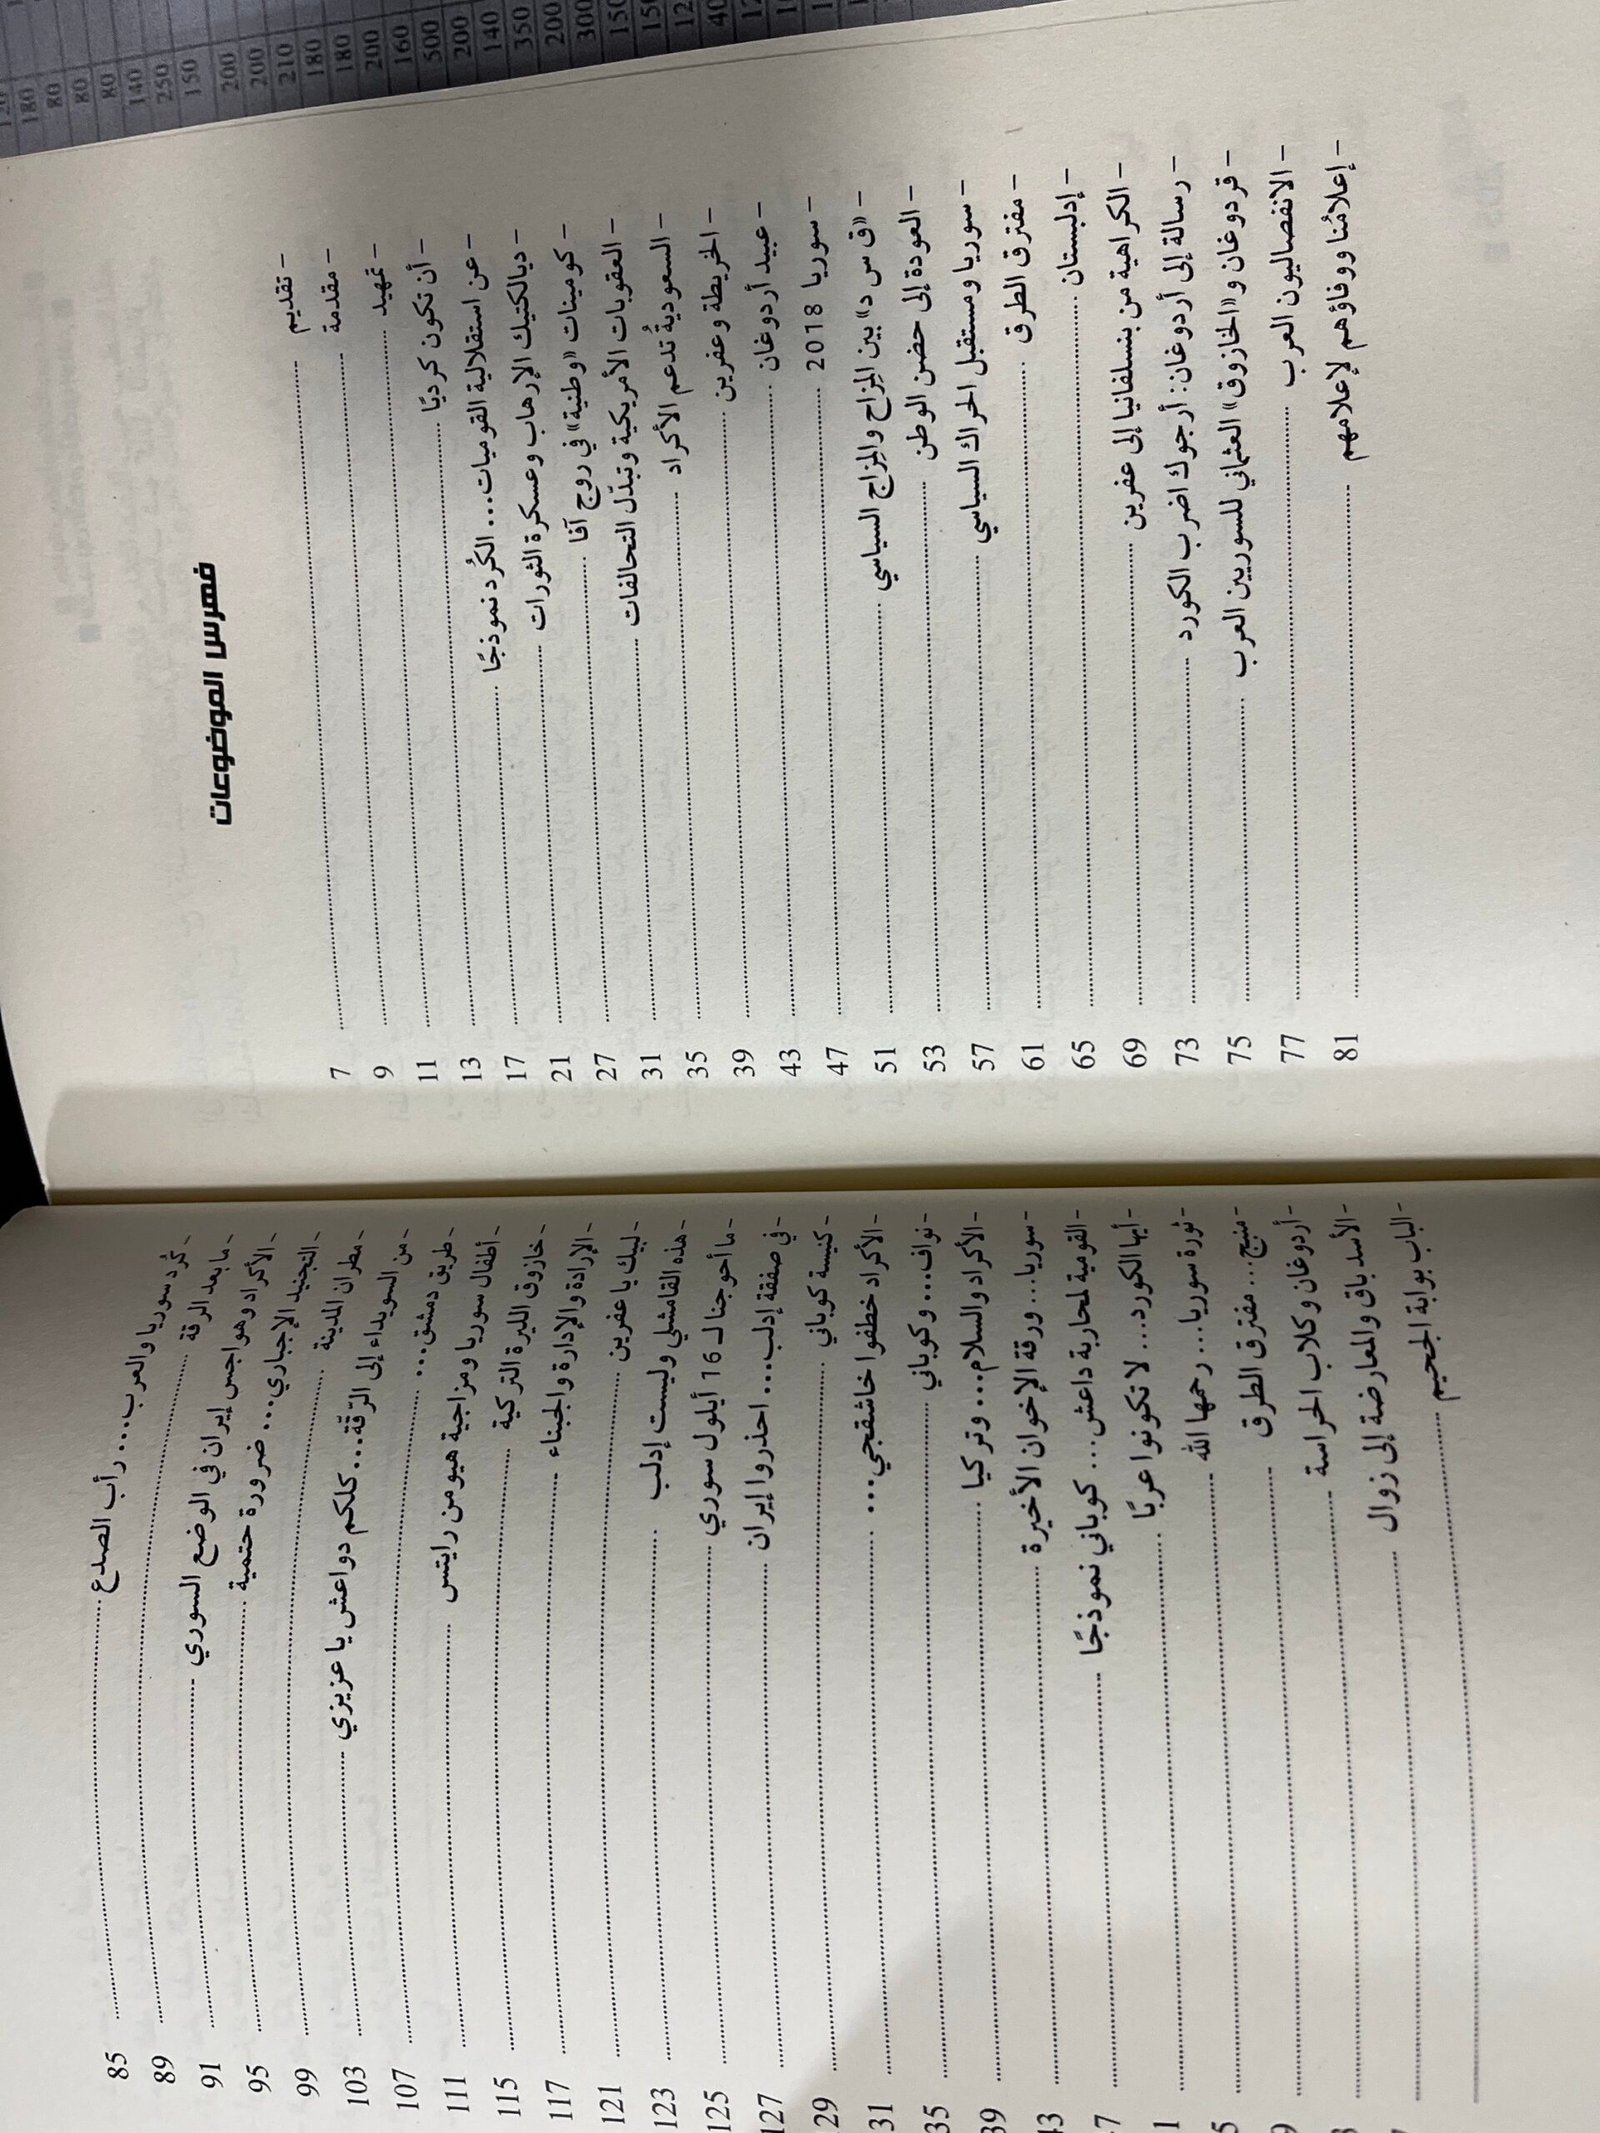 فهرس الموضوعات
- تقديم ........ 7
- مقدمة ........ 9
- تمهيد ........ 11
- أن تكون كرديًا ........ 13
- عن استقلالية القوميات... الكُرد نموذجًا ........ 17
- ديالكتيك الإرهاب وعسكرة الثورات ........ 21
- كومينات «وطنية» في روج آفا ........ 27
- العقوبات الأمريكية وتبدّل التحالفات ........ 31
- السعوديةُ تدعم الأكراد ........ 35
- الخريطة وعفرين ........ 39
- عبيد أردوغان ........ 43
- سوريا 2018 ........ 47
- «ق س د» بين المِزاح والمِزاج السياسي ........ 51
- العودة إلى حضن الوطن ........ 53
- سوريا ومستقبل الحراك السياسي ........ 57
- مفترق الطرق ........ 61
- إدلبستان ........ 65
- الكراهية من بنسلفانيا إلى عفرين ........ 69
- رسالة إلى أردوغان: أرجوك اضرب الكورد ........ 73
- قردوغان و«الخازوق» العثماني للسوريين العرب ........ 75
- الانفصاليون العرب ........ 77
- إعلامُنا ووفاؤهم لإعلامهم ........ 81
- كُرد سوريا والعرب... رأب الصدع ........ 85
- ما بعد الرقة ........ 89
- الأكراد وهواجس إيران في الوضع السوري ........ 91
- التجنيد الإجباري... ضرورة حتمية ........ 95
- مطران المدينة ........ 99
- من السويداء إلى الرّقّة... كلكم دواعش يا عزيزي ........ 103
- طريق دمشق... ........ 107
- أطفال سوريا ومزاجية هيومن رايتس ........ 111
- خازوق الليرة التركية ........ 115
- الإرادة والإدارة والجبناء ........ 117
- لبيك يا عفرين ........ 121
- هذه القامشلي وليست إدلب ........ 123
- ما أحوجنا لـ 16 أيلول سوري ........ 125
- في صفقة إدلب... احذروا إيران ........ 127
- كنيسة كوباني ........ 29
- الأكراد خطفوا خاشقجي... ........ 31
- نواف... وكوباني ........ 35
- الأكراد والسلام... وتركيا ........ 39
- سوريا... ورقة الإخوان الأخيرة ........ 43
- القومية لمحاربة داعش... كوباني نموذجًا ........ 7
- أيها الكورد... لا تكونوا عربًا ........ 1
- ثورة سوريا... رحمها الله ........ 5
- منبج... مفترق الطرق ........ 9
- أردوغان وكلاب الحراسة ........
- الأسد باق والمعارضة إلى زوال ........
- الباب بوابة الجحيم ........